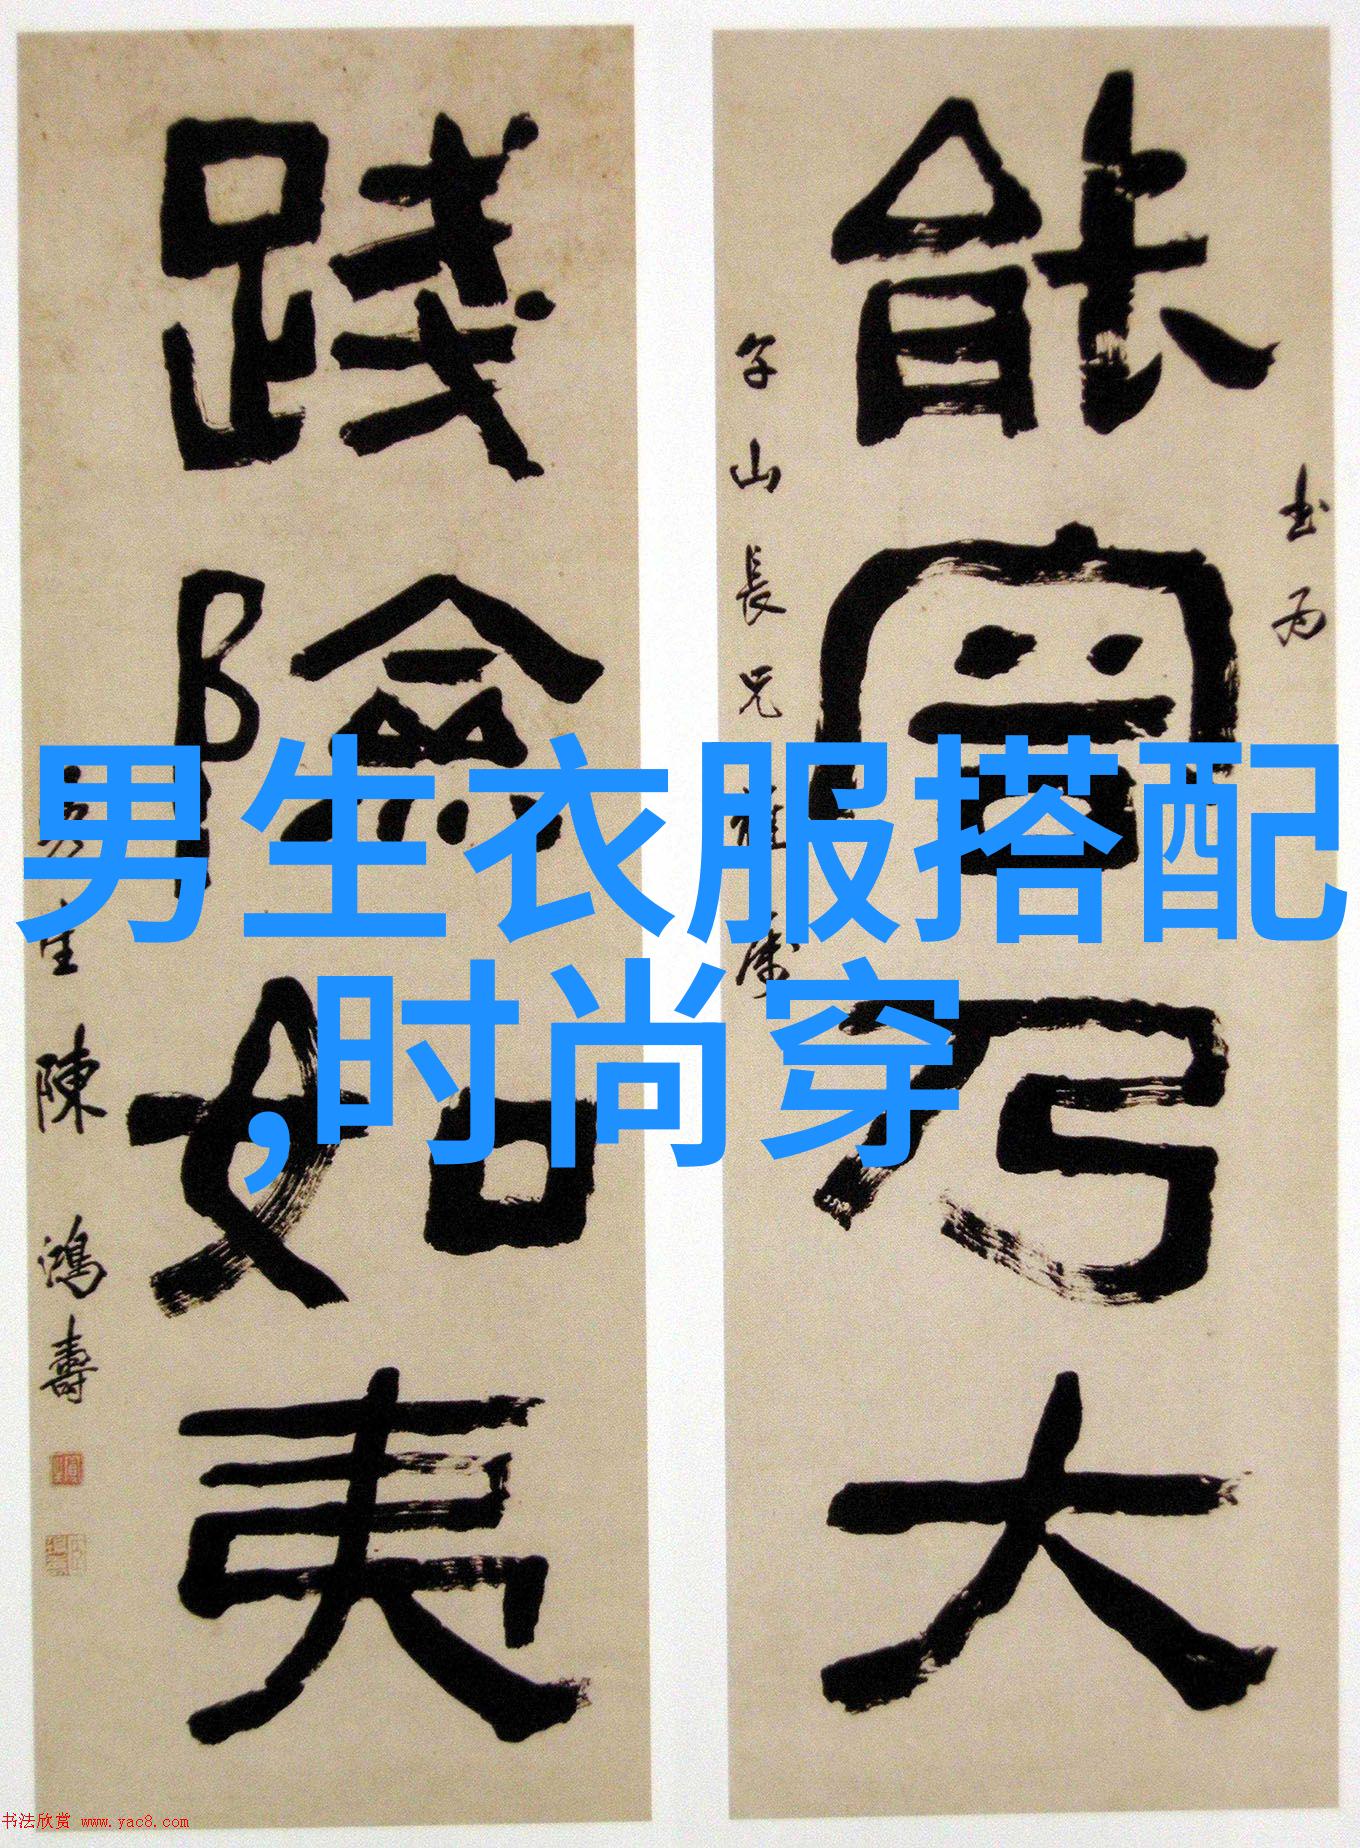 能容乃大
書為
山長兄雅屬
踐險如夷
曼生陳鴻壽
男生衣服搭配
,时尚穿
书法欣赏 www.yac8.com